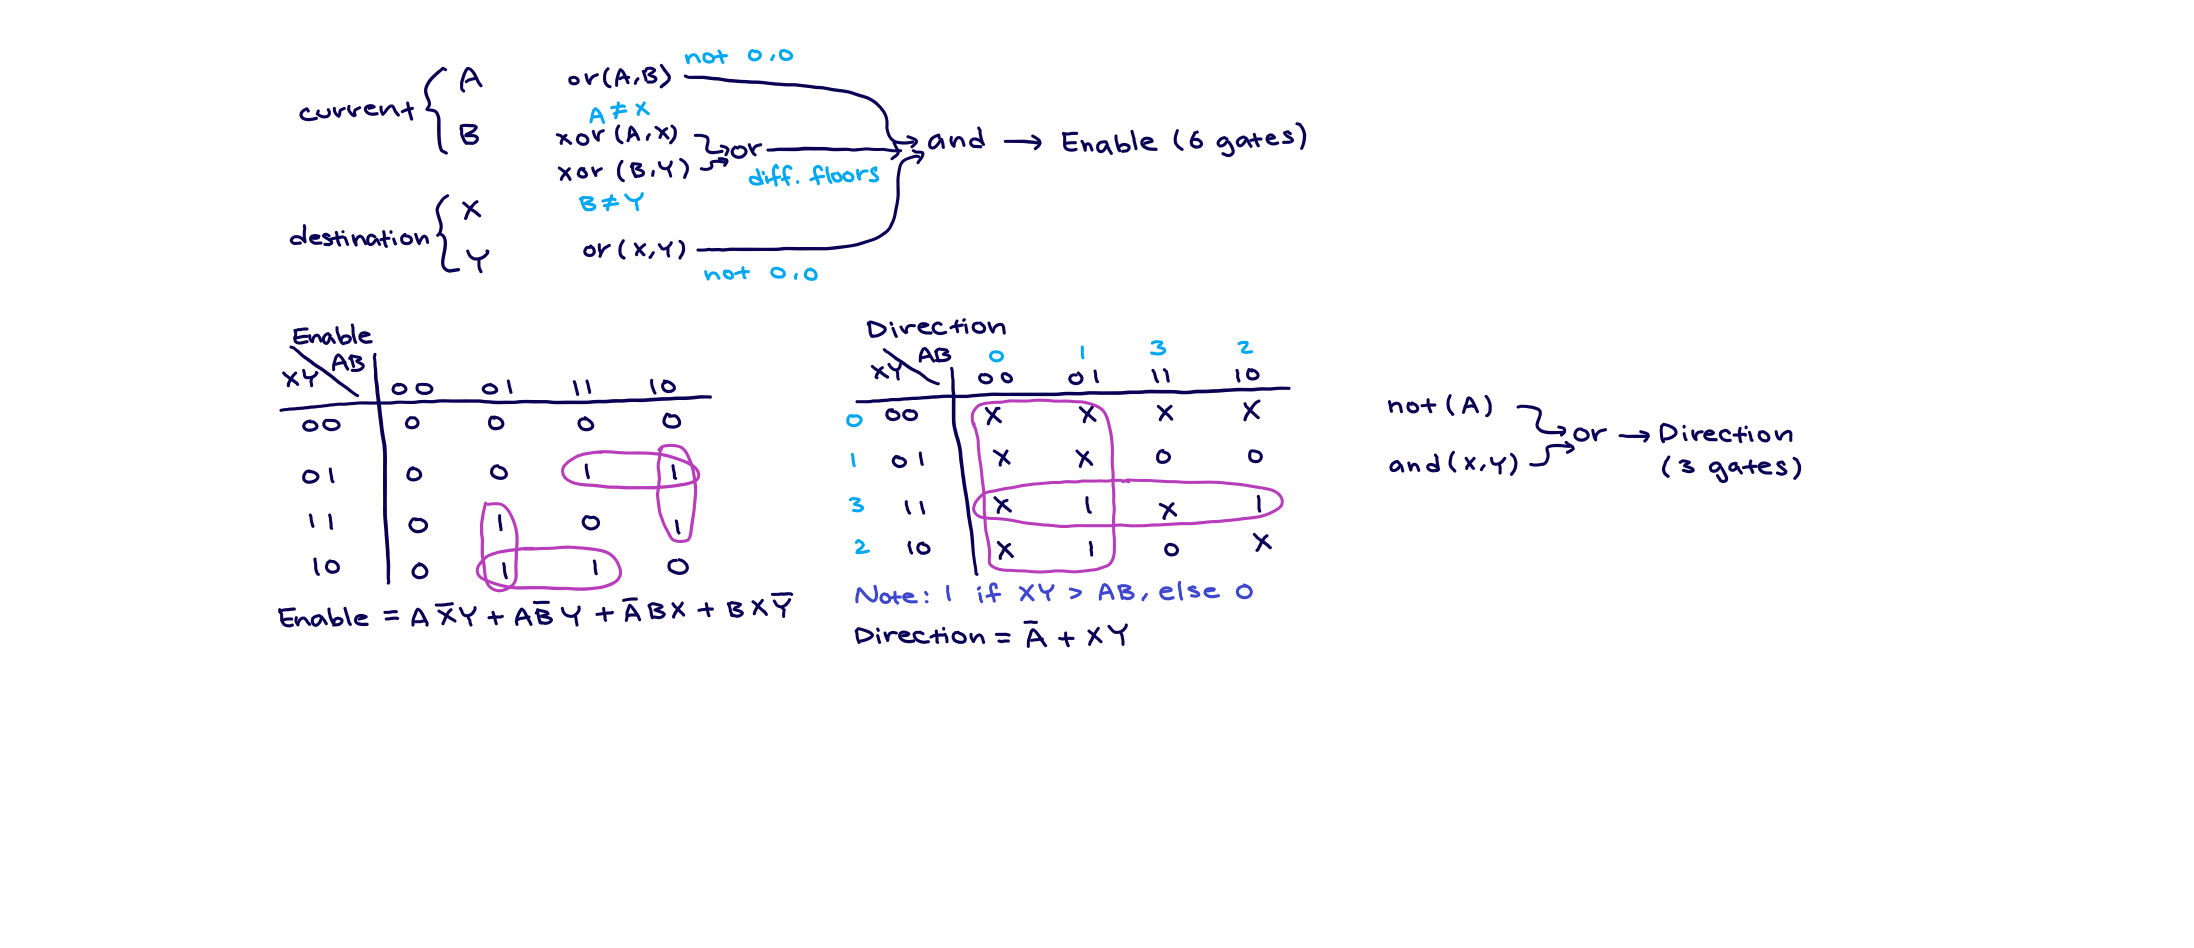 current { A
B
destination { X
Y
or(A,B) not 0,0
A ≠ X
xor(A,X)
xor(B,Y) → or
diff. floors
B ≠ Y
or(X,Y)
not 0,0
→ and → Enable (6 gates)
Enable
XY \ AB 00 01 11 10
00 0 0 0 0
01 0 0 1 1
11 0 1 0 1
10 0 1 1 0
Enable = A X̅ Y + A B̅ Y + A̅ B X + B X Y̅
Direction
AB 0 1 3 2
XY 00 01 11 10
0 00 X X X X
1 01 X X 0 0
3 11 X 1 X 1
2 10 X 1 0 X
Note: 1 if XY > AB, else 0
Direction = A̅ + XY
not(A)
and(X,Y) → or → Direction
(3 gates)